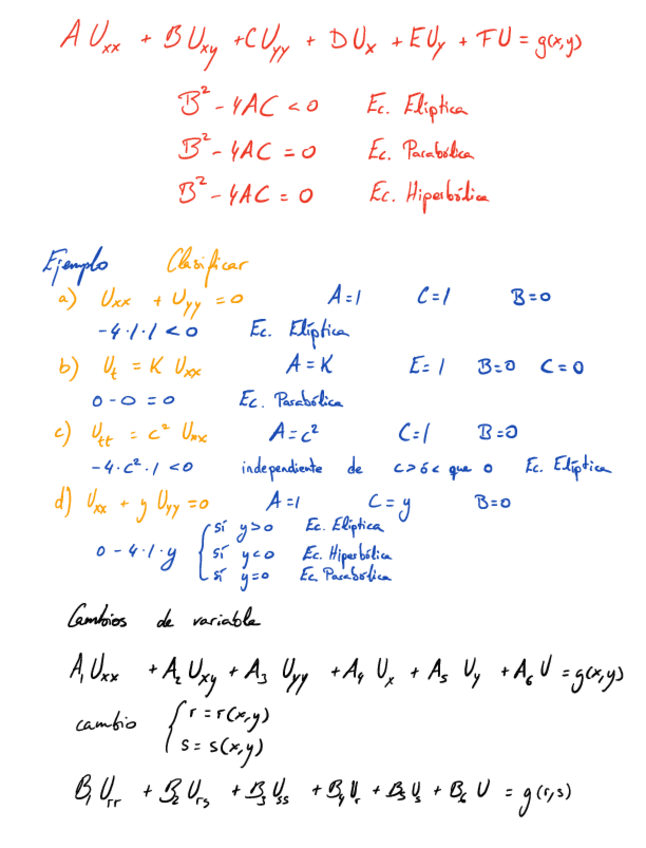 A Uxx + B Uxy + C Uyy + D Ux + E Uy + F U = g(x,y)
B² - 4AC < 0 Ec. Elíptica
B² - 4AC = 0 Ec. Parabólica
B² - 4AC = 0 Ec. Hiperbólica
Ejemplo Clasificar
a) Uxx + Uyy = 0 A=1 C=1 B=0
-4·1·1 < 0 Ec. Elíptica
b) Ut = K Uxx A=K E=1 B=0 C=0
0-0=0 Ec. Parabólica
c) Utt = c² Uxx A=c² C=1 B=0
-4·c²·1 < 0 independiente de c> ó c que 0 Ec. Elíptica
d) Uxx + y Uyy = 0 A=1 C=y B=0
0-4·1·y { sí y>0 Ec. Elíptica
sí y<0 Ec. Hiperbólica
sí y=0 Ec. Parabólica
Cambios de variable
A₁Uxx + A₂Uxy + A₃ Uyy + A₄ Ux + A₅ Uy + A₆ U = g(x,y)
cambio { r = r(x,y)
s = s(x,y)
B₁Urr + B₂Urs + B₃Uss + B₄Ur + B₅Us + B₆ U = g(r,s)